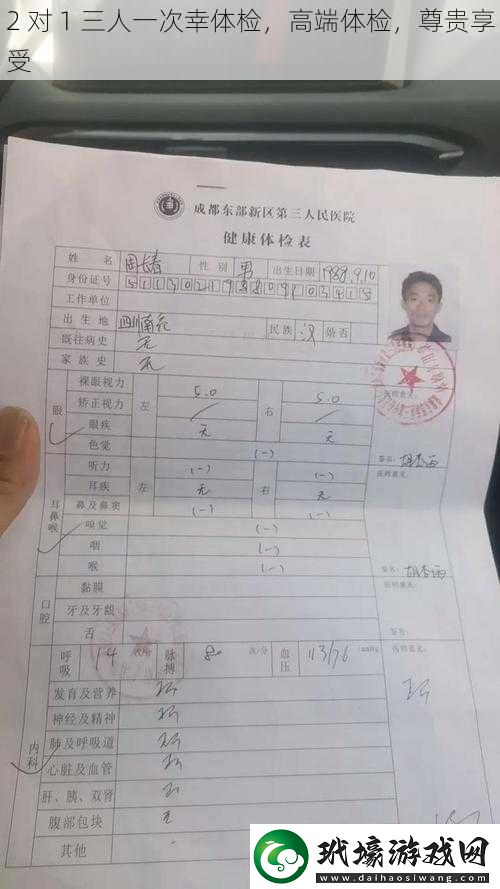 2 对 1 三人一次幸体检，高端体检，尊贵享
受
成都东部新区第三人民医院
健康体检表
姓 名 性 别 男 出生日期 1988.9.10
身份证号
工作单位
出 生 地 四川南充 民族 汉 婚否
既往病史 无
家 族 史 无
眼 裸眼视力 左 5.0 右 5.0 医师意见：
矫正视力 / /
眼疾 无 无
色觉 (-) 签名：
耳鼻喉 听力 左 (-) 右 (-) 医师意见：
耳疾 无 无
鼻及鼻窦 (-) (-)
嗅觉 (-)
咽 (-)
喉 (-) 签名：
口腔 黏膜 医师意见：
牙及牙龈
舌 签名：
内科 呼吸 14 次/分 脉搏 80 次/分 血压 113/76 mmHg 医师意见：
发育及营养
神经及精神
肺及呼吸道
心脏及血管
肝、胰、双肾
腹部包块 无
其他
玳壕游戏网
www.daihaosiwang.com